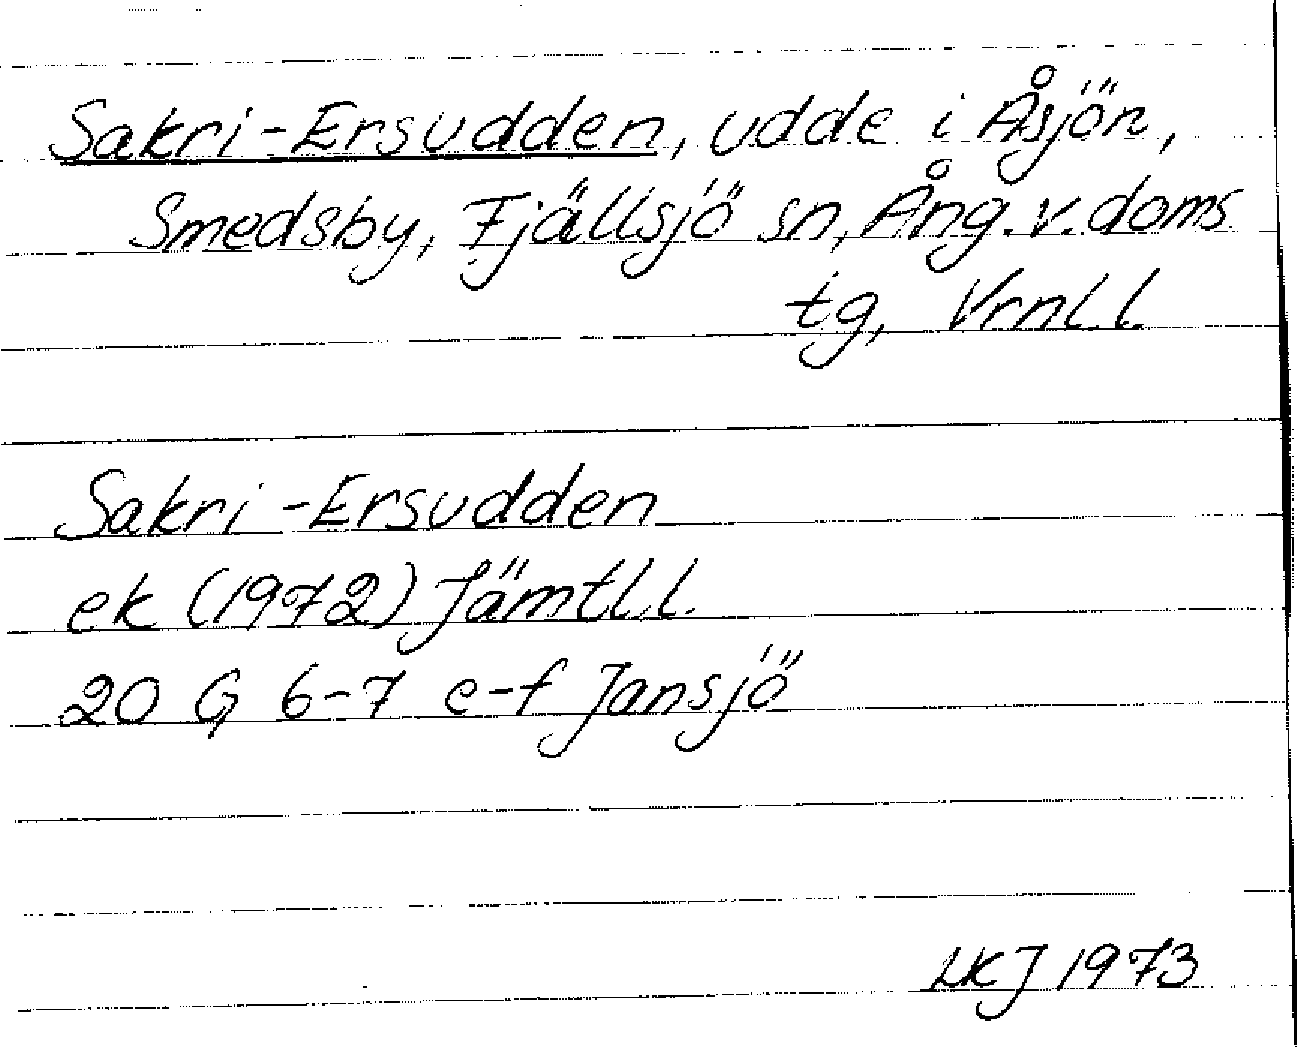 Sakri-Ersudden, udde i Åsjön,
Smedsby, Fjällsjö sn, Ång. v. doms.
tg, Vrnl. l.
Sakri-Ersudden
ek (1972) Jämtl. l.
20 G 6-7 e-f Jansjö
LKJ 1973